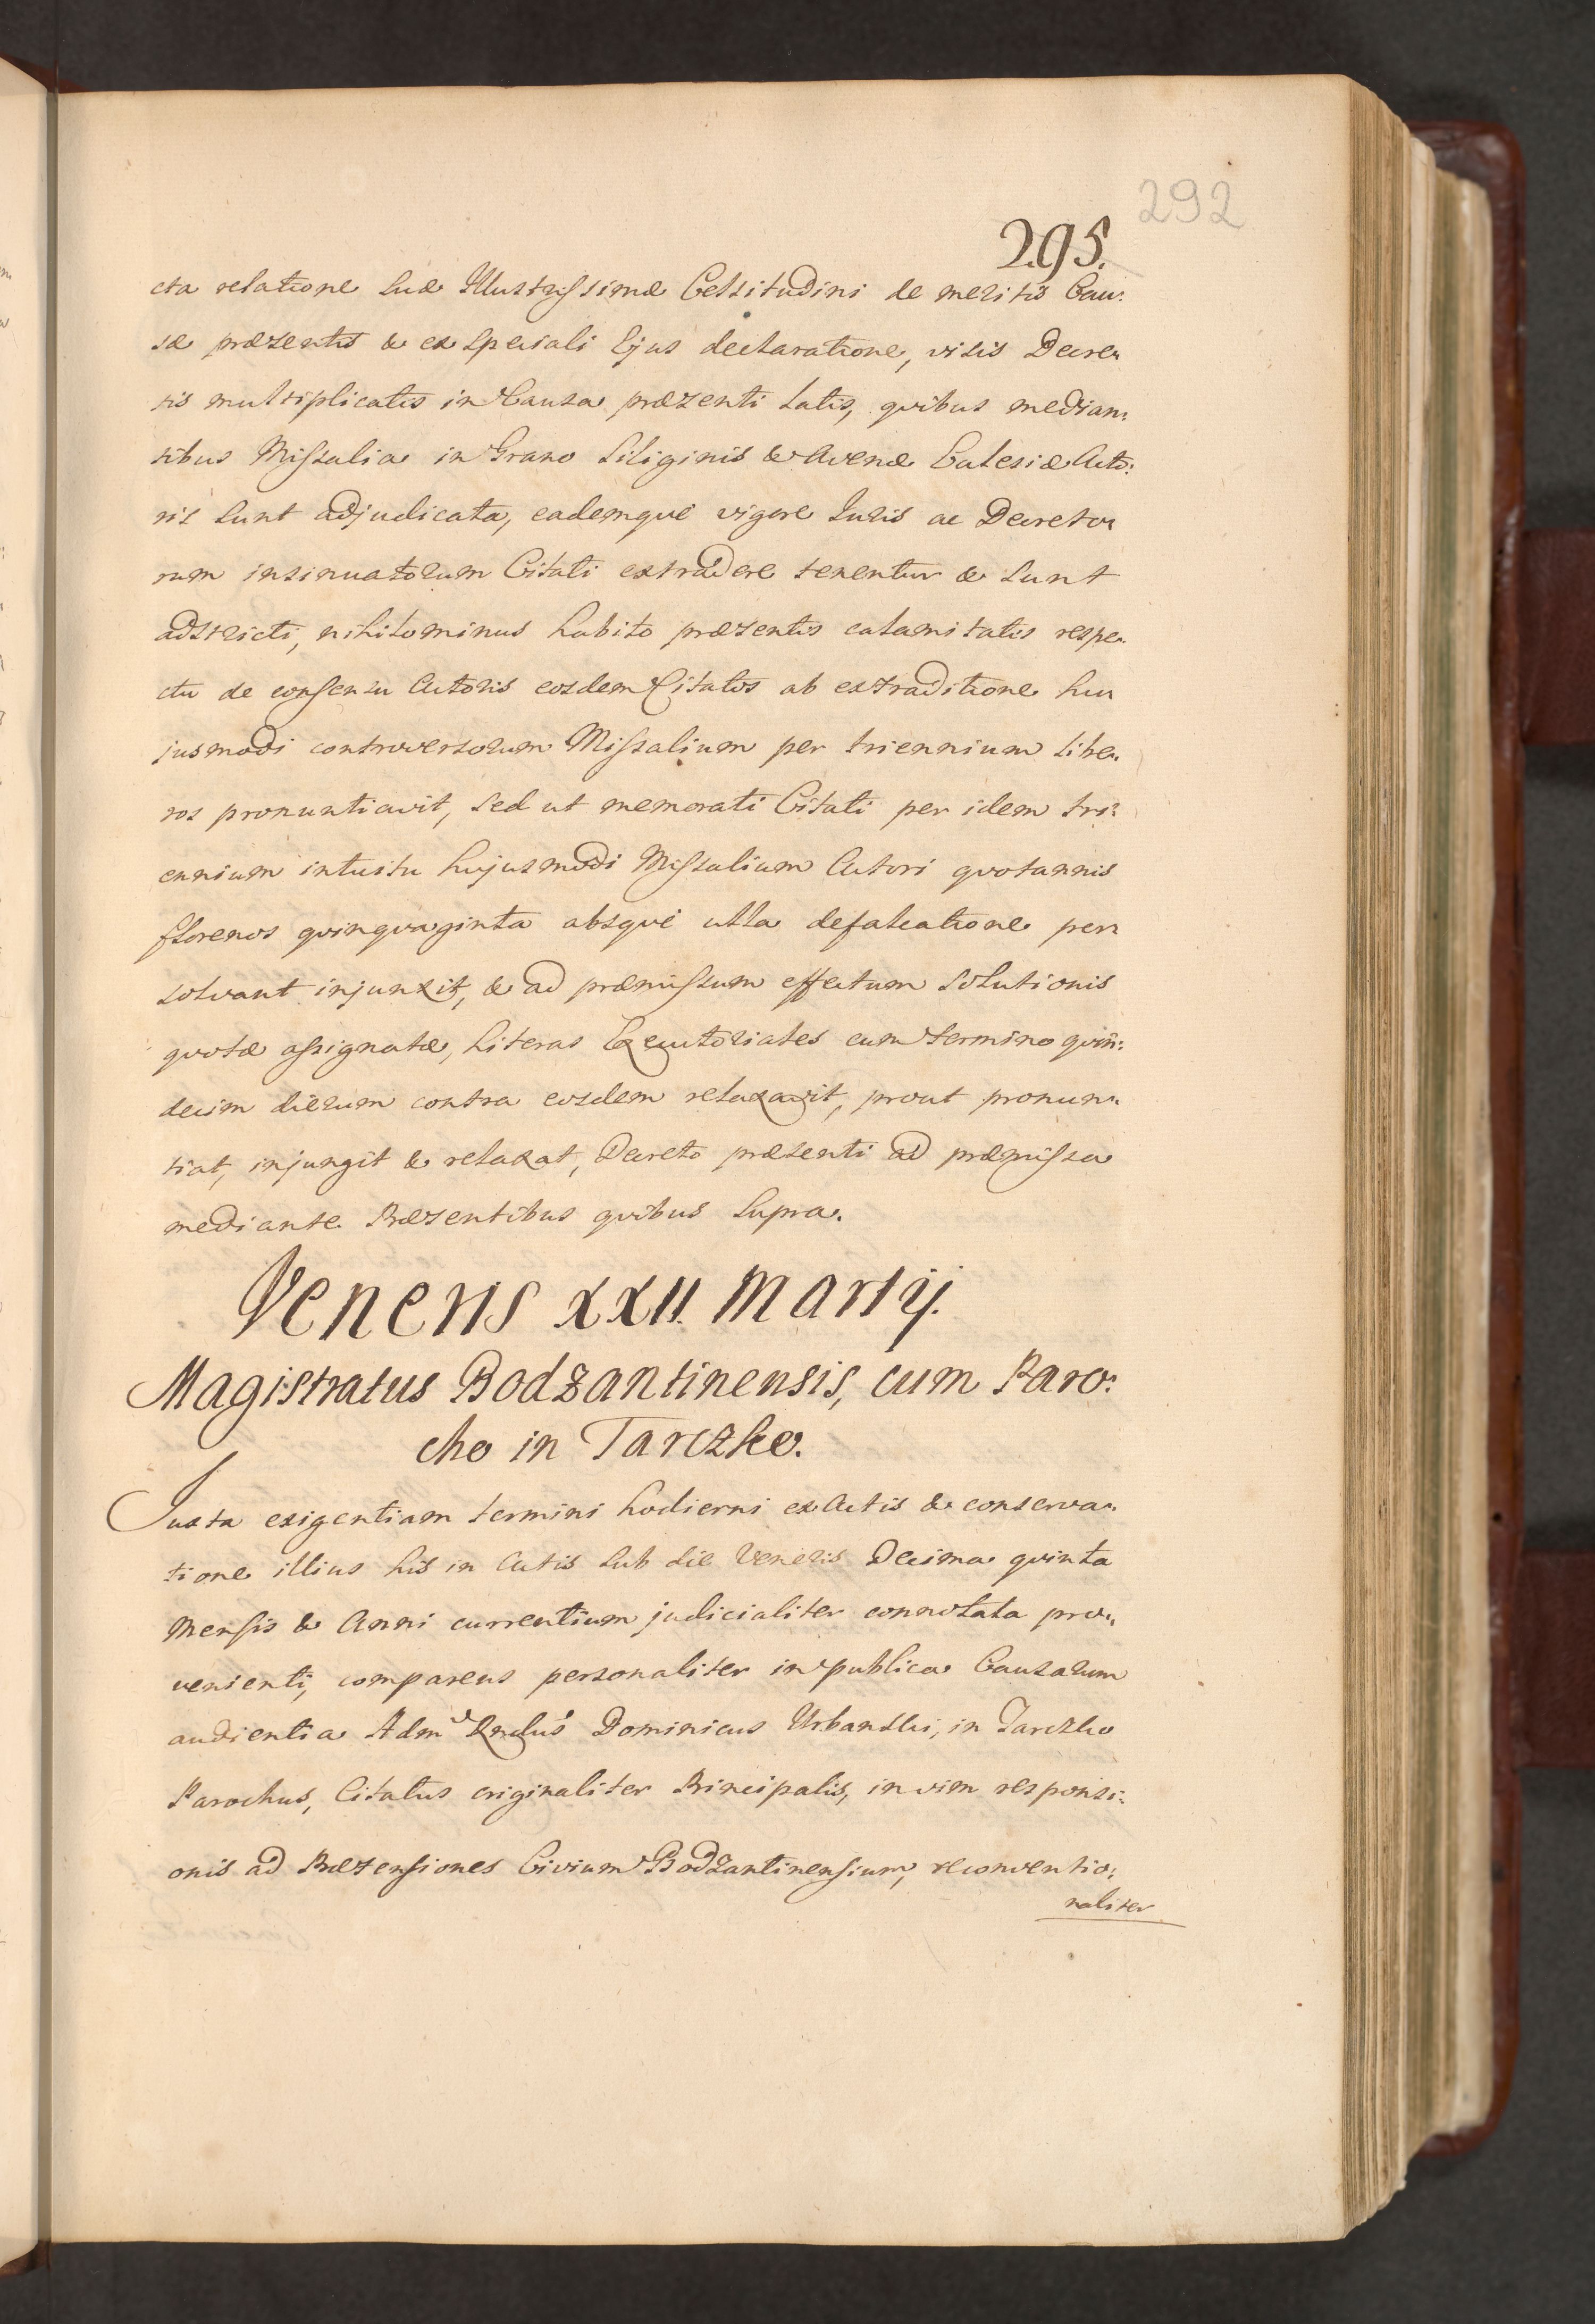 292
295.
cta relatione Suæ Illustrissimæ Celsitudini de meritis Cau:
sæ præsentis & ex speciali Ejus declaratione, visis Decre„
tis multiplicatis in Causa præsenti latis, quibus median:
tibus Missalia in Grano Siliginis & Avenæ Ecclesiæ Acto:
ris sunt adjudicata, eademque vigore Juris ac Decreto„
rum insinuatorum Citati extradere tenentur & sunt
adstricti, nihilominus habito præsentis calamitatis respe„
ctu de consensu Actoris eosdem Citatos ab extraditione hu„
jusmodi controversorum Missalium per triennium libe„
ros pronuntiavit, sed ut memorati Citati per idem tri:
ennium intuitu hujusmodi Missalium Actori quotannis
florenos quinquaginta absque ulla defalcatione per„
solvant injunxit, & ad præmissum effectum solutionis
quotæ assignatæ, Literas Executoriales cum termino quin:
decim dierum contra eosdem relaxavit, prout pronun„
tiat, injungit & relaxat, Decreto præsenti ad præmissa
mediante Præsentibus quibus supra.
Veneris XXII. Martij.
Magistratus Bodzantinensis, cum Paro:
cho in Tarczko.
Juxta exigentiam termini hodierni ex Actis & conserva„
tione illius his in Actis sub die Veneris Decima quinta
Mensis & Anni currentium judicialiter connotata pro„
venienti, comparens personaliter in publica Causarum
audientia Adm Rndus Dominicus Urbanski, in Tarczko
Parochus, Citatus originaliter Principalis, in vim responsi:
onis ad Prætensiones Civium Bodzantinensium, reconventio:
naliter